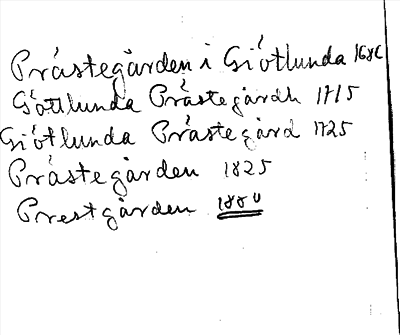 Prästegården i Giötlunda 1686
Göttlunda Prästegårdh 1715
Giötlunda Prästegård 1725
Prästegården 1825
Prestgården 1880